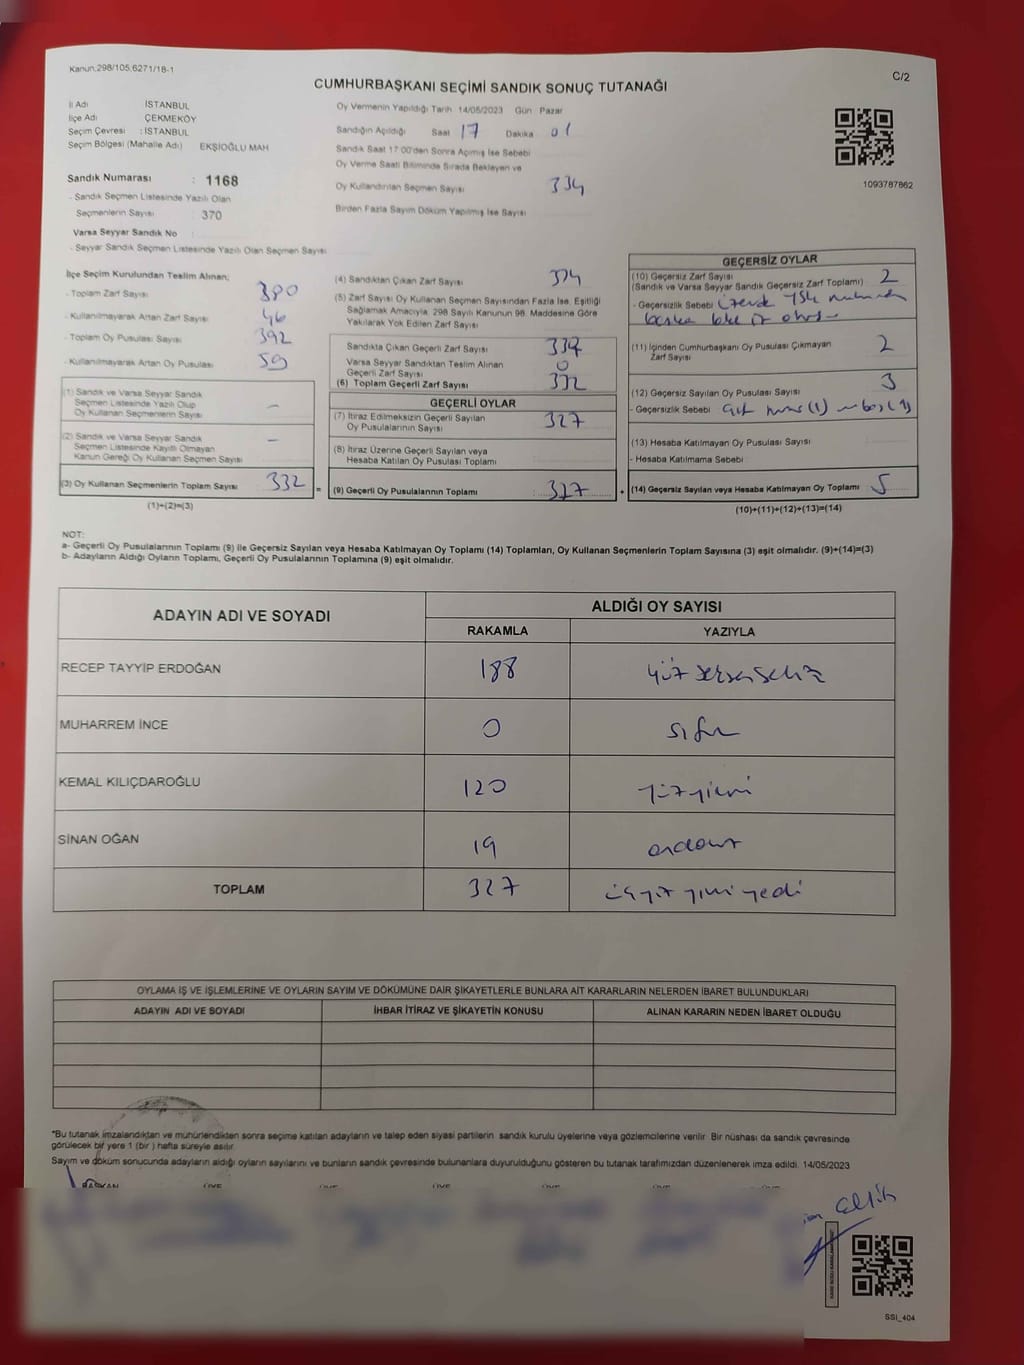 Kanun.298/105.6271/18-1
C/2
CUMHURBAŞKANI SEÇİMİ SANDIK SONUÇ TUTANAĞI
İl Adı İSTANBUL
İlçe Adı ÇEKMEKÖY
Seçim Çevresi : İSTANBUL
Seçim Bölgesi (Mahalle Adı) EKŞİOĞLU MAH
Sandık Numarası : 1168
- Sandık Seçmen Listesinde Yazılı Olan
Seçmenlerin Sayısı : 370
Varsa Seyyar Sandık No
- Seyyar Sandık Seçmen Listesinde Yazılı Olan Seçmen Sayısı
Oy Vermenin Yapıldığı Tarih 14/05/2023 Gün Pazar
Sandığın Açıldığı Saat 17 Dakika 01
Sandık Saat 17:00'den Sonra Açılmış İse Sebebi
Oy Verme Saati Bitiminde Sırada Bekleyen ve
Oy Kullandırılan Seçmen Sayısı 334
Birden Fazla Sayım Döküm Yapılmış İse Sayısı
1093787862
İlçe Seçim Kurulundan Teslim Alınan;
- Toplam Zarf Sayısı 380
- Kullanılmayarak Artan Zarf Sayısı 46
- Toplam Oy Pusulası Sayısı 392
- Kullanılmayarak Artan Oy Pusulası 59
(1) Sandık ve Varsa Seyyar Sandık
Seçmen Listesinde Yazılı Olup
Oy Kullanan Seçmenlerin Sayısı –
(2) Sandık ve Varsa Seyyar Sandık
Seçmen Listesinde Kayıtlı Olmayan
Kanun Gereği Oy Kullanan Seçmen Sayısı –
(3) Oy Kullanan Seçmenlerin Toplam Sayısı 332 =
(1)+(2)=(3)
(4) Sandıktan Çıkan Zarf Sayısı 334
(5) Zarf Sayısı Oy Kullanan Seçmen Sayısından Fazla İse, Eşitliği
Sağlamak Amacıyla, 298 Sayılı Kanunun 98. Maddesine Göre
Yakılarak Yok Edilen Zarf Sayısı
Sandıkta Çıkan Geçerli Zarf Sayısı 334
Varsa Seyyar Sandıktan Teslim Alınan
Geçerli Zarf Sayısı 0
(6) Toplam Geçerli Zarf Sayısı 332
GEÇERLİ OYLAR
(7) İtiraz Edilmeksizin Geçerli Sayılan
Oy Pusulalarının Sayısı 327
(8) İtiraz Üzerine Geçerli Sayılan veya
Hesaba Katılan Oy Pusulası Toplamı
(9) Geçerli Oy Pusulalarının Toplamı : 327 +
GEÇERSİZ OYLAR
(10) Geçersiz Zarf Sayısı
(Sandık ve Varsa Seyyar Sandık Geçersiz Zarf Toplamı) 2
- Geçersizlik Sebebi
(11) İçinden Cumhurbaşkanı Oy Pusulası Çıkmayan
Zarf Sayısı 2
(12) Geçersiz Sayılan Oy Pusulası Sayısı 3
- Geçersizlik Sebebi
(13) Hesaba Katılmayan Oy Pusulası Sayısı
- Hesaba Katılmama Sebebi
(14) Geçersiz Sayılan veya Hesaba Katılmayan Oy Toplamı 5
(10)+(11)+(12)+(13)=(14)
NOT:
a- Geçerli Oy Pusulalarının Toplamı (9) ile Geçersiz Sayılan veya Hesaba Katılmayan Oy Toplamı (14) Toplamları, Oy Kullanan Seçmenlerin Toplam Sayısına (3) eşit olmalıdır. (9)+(14)=(3)
b- Adayların Aldığı Oyların Toplamı, Geçerli Oy Pusulalarının Toplamına (9) eşit olmalıdır.
ADAYIN ADI VE SOYADI
ALDIĞI OY SAYISI
RAKAMLA YAZIYLA
RECEP TAYYİP ERDOĞAN 188 yüz seksen sekiz
MUHARREM İNCE 0 sıfır
KEMAL KILIÇDAROĞLU 120 yüz yirmi
SİNAN OĞAN 19 ondokuz
TOPLAM 327 üçyüz yirmi yedi
OYLAMA İŞ VE İŞLEMLERİNE VE OYLARIN SAYIM VE DÖKÜMÜNE DAİR ŞİKAYETLERLE BUNLARA AİT KARARLARIN NELERDEN İBARET BULUNDUKLARI
ADAYIN ADI VE SOYADI İHBAR İTİRAZ VE ŞİKAYETİN KONUSU ALINAN KARARIN NEDEN İBARET OLDUĞU
*Bu tutanak imzalandıktan ve mühürlendikten sonra seçime katılan adayların ve talep eden siyasi partilerin sandık kurulu üyelerine veya gözlemcilerine verilir. Bir nüshası da sandık çevresinde
görülecek bir yere 1 (bir ) hafta süreyle asılır.
Sayım ve döküm sonucunda adayların aldığı oyların sayılarını ve bunların sandık çevresinde bulunanlara duyurulduğunu gösteren bu tutanak tarafımızdan düzenlenerek imza edildi. 14/05/2023
BAŞKAN ÜYE ÜYE ÜYE ÜYE ÜYE
SSI_404